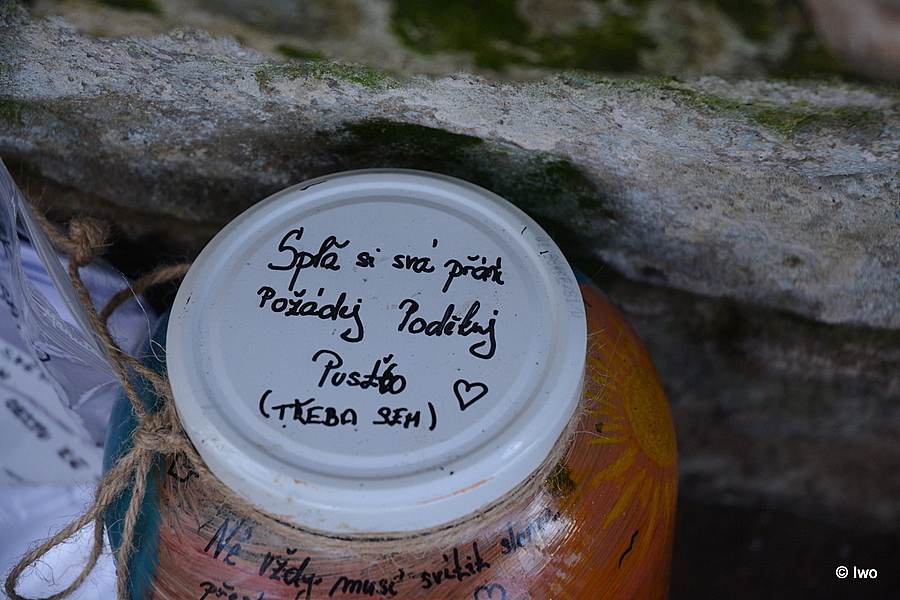 Splň si svá přání
Požádej Poděkuj
Pusť to
(TŘEBA SEM)
Ne vždy musí svítit
© Iwo